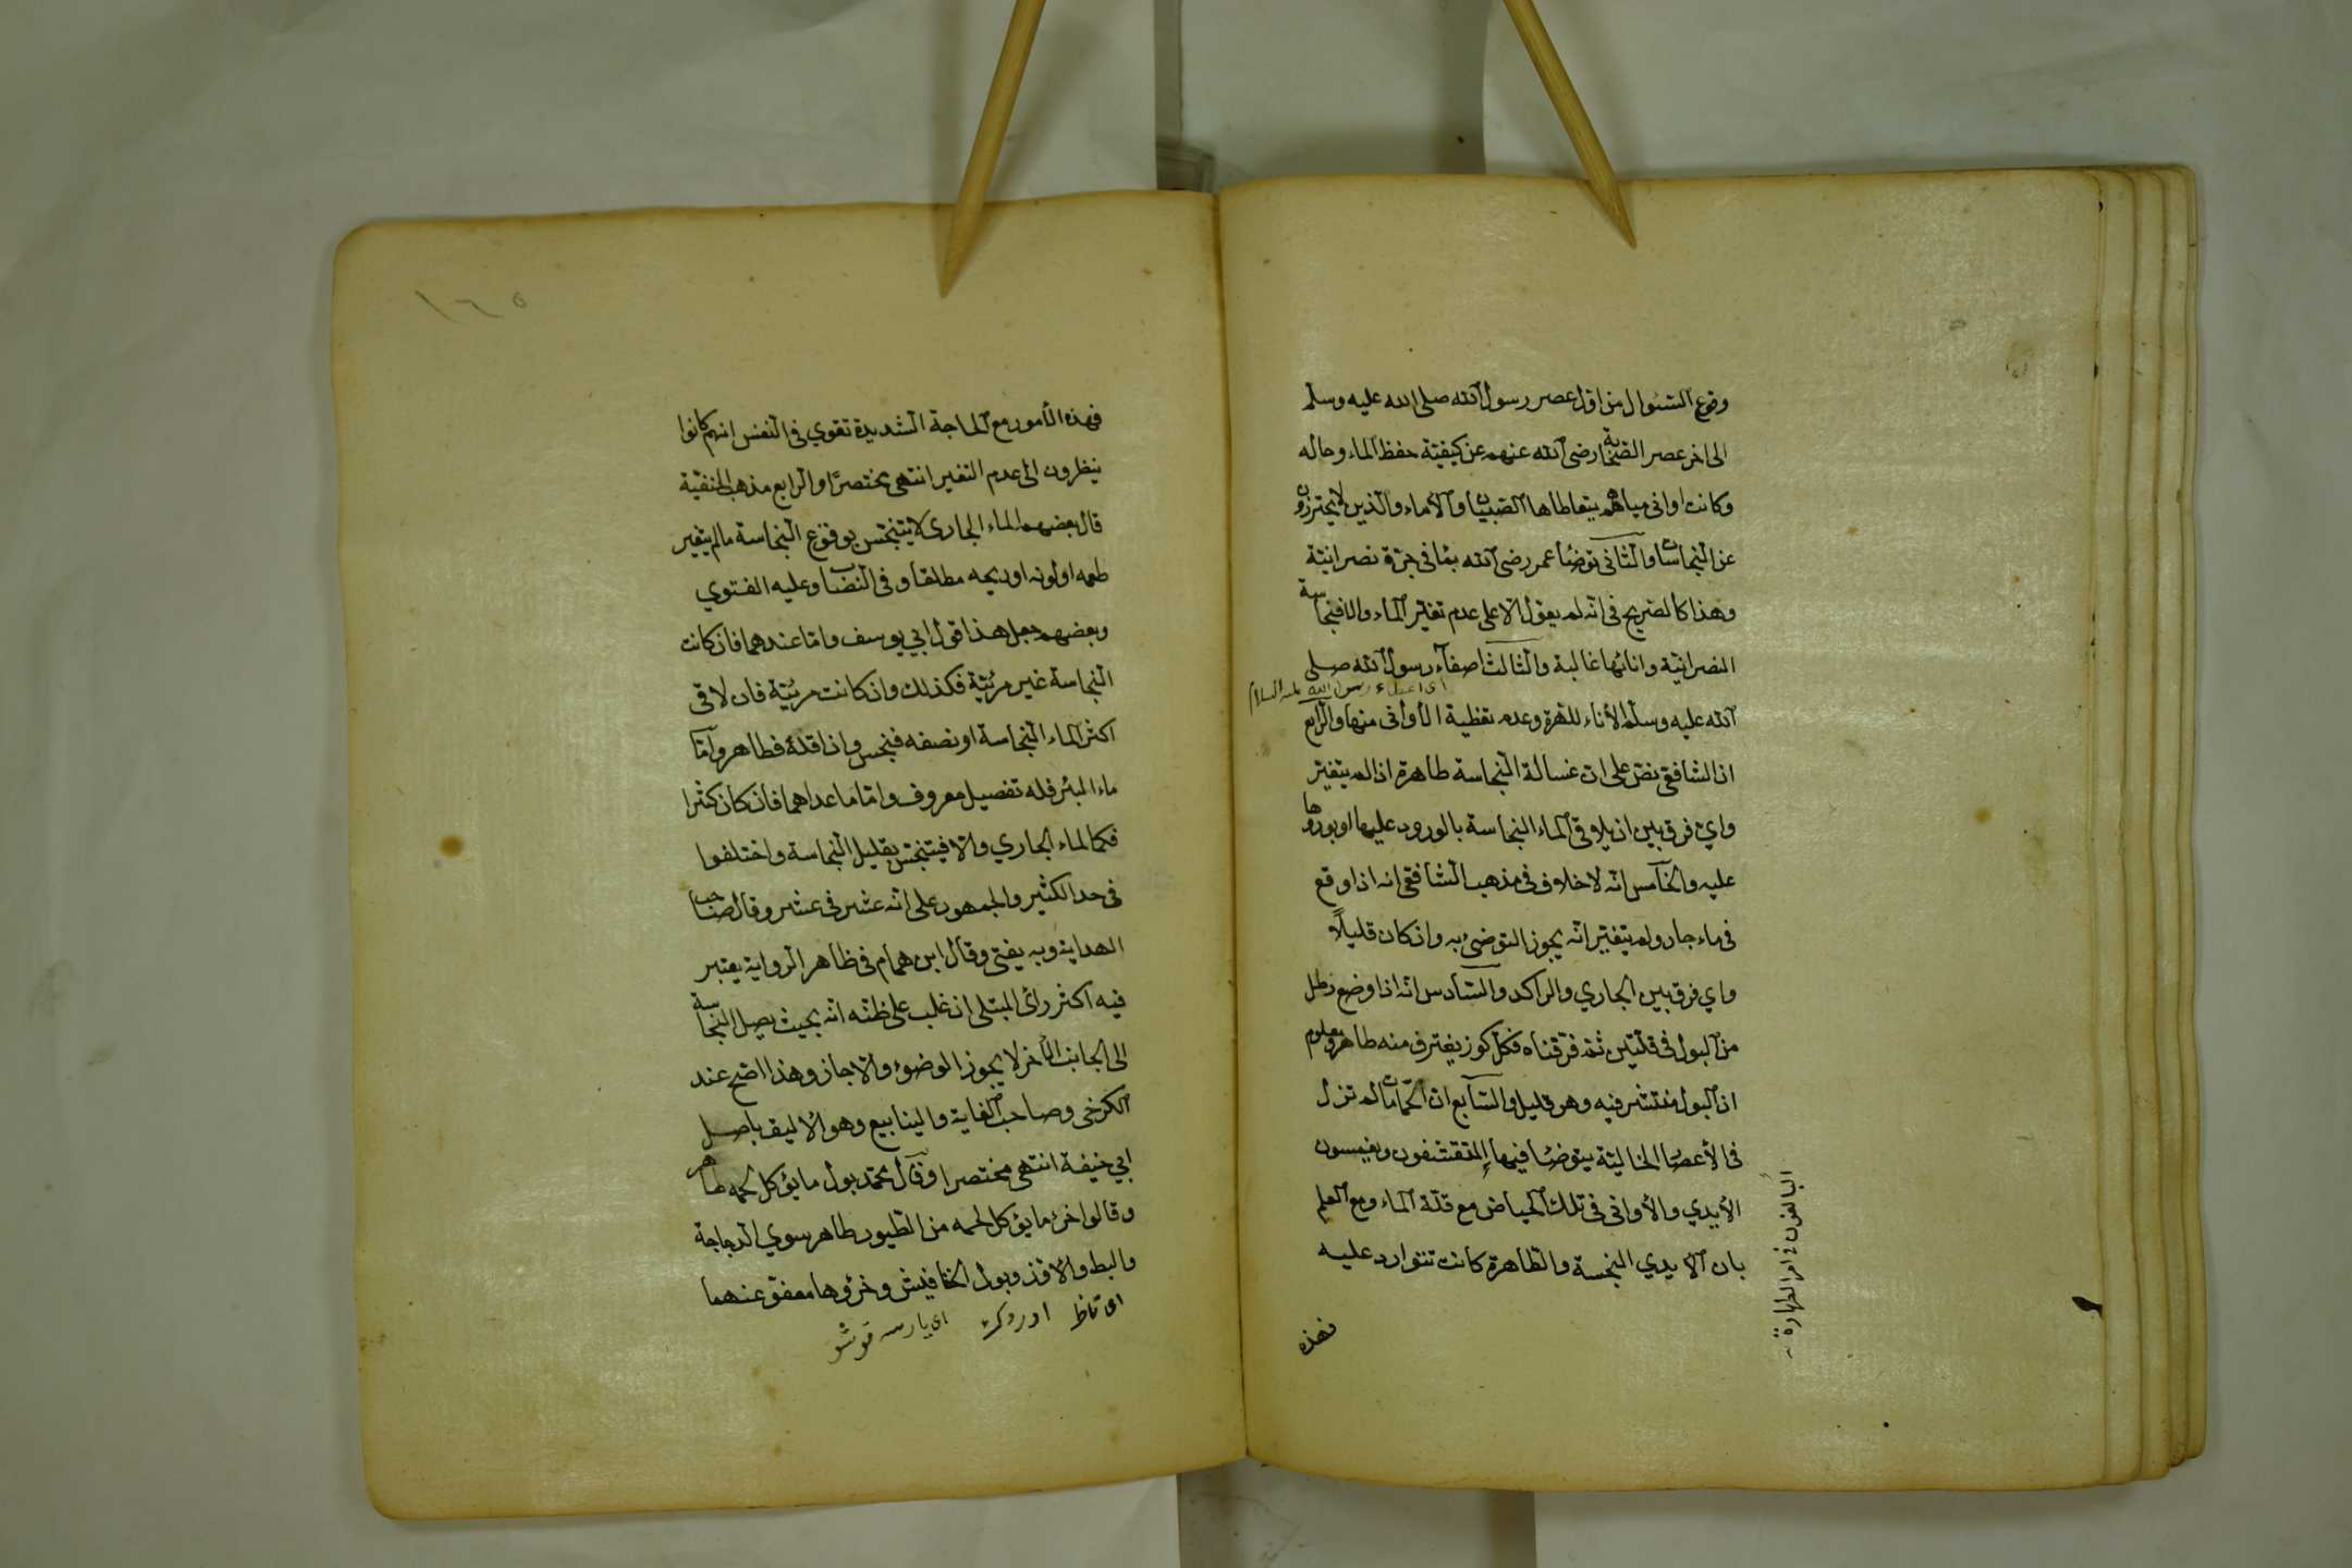 وقوع السؤال من اول عصر رسول الله صلى الله عليه وسلم
الى اخر عصر الصحابة رضى الله عنهم عن كيفية حفظ الماء وحاله
وكانت اوانى مياههم يتعاطاها الصبيان والأماء والذين لا يحترزون
عن النجاسات والثانى توضأ عمر رضى الله بما فى جرة نصرانية
وهذا كالصريح فى انه لم يعول الا على عدم تغير الماء والا فنجاسة
النصرانية وانائها غالبة والثالث اصغاء رسول الله صلى
اى اعطاء رسول الله عليه السلام
الله عليه وسلم الأناء للهرة وعدم تغطية الأوانى منها والرابع
ان الشافعى نص على ان غسالة النجاسة طاهرة اذا لم يتغير
واي فرق بين ان يلاقى الماء النجاسة بالورود عليها او بورودها
عليه والخامس انه لا خلاف فى مذهب الشافعى انه اذا وقع
فى ماء جار ولم يتغير انه يجوز التوضئ به وان كان قليلاً
واي فرق بين الجاري والراكد والسادس انه اذا وضع رطل
من البول فى قلتين ثم فرقناه فكل كوز يغترف منه طاهر ومعلوم
ان البول منتشر فيه وهو قليل والسابع ان الحمامات لم تزل
فى الأعصار الخالية يتوضأ فيها المتقشفون ويغمسون
الأيدي والأوانى فى تلك الحياض مع قلة الماء ومع العلم
بان الايدي النجسة والطاهرة كانت تتوارد عليه
البالغون فى امر الطهارة
فهذه
١٦٥
فهذه الأمور مع الحاجة الشديدة تقوي فى النفس انهم كانوا
ينظرون الى عدم التغير انتهى مختصرًا والرابع مذهب الحنفية
قال بعضهم الماء الجارى لا يتنجس بوقوع النجاسة ما لم يتغير
طعمه او لونه او ريحه مطلقا وفى النصاب وعليه الفتوي
وبعضهم جعل هذا قول ابي يوسف واما عندهما فان كانت
النجاسة غير مرئية فكذلك وان كانت مرئية فان لاقى
اكثر الماء النجاسة او نصفه فنجس وان اقله فطاهر واما
ماء البئر فله تفصيل معروف واما ما عداهما فان كان كثرا
فكالماء الجاري والا فيتنجس بقليل النجاسة واختلفوا
فى حد الكثير والجمهور على انه عشر فى عشر وقال صاحب
الهداية وبه يفتى وقال ابن همام فى ظاهر الرواية يعتبر
فيه اكثر رائ المبتلى ان غلب على ظنه انه بحيث يصل النجاسة
الى الجانب الأخر لا يجوز الوضوء والا جاز وهذا اصح عند
الكرخى وصاحب الغاية والينابيع وهو الاليق باصل
ابي حنيفة انتهى مختصرا وقال محمد بول ما يؤكل لحمه طاهر
وقالوا خرء ما يؤكل لحمه من الطيور طاهر سوي الدجاجة
والبط والاوز وبول الخفافيش وخرؤها معفو عنهما
اى قاظ اوردك اى يارسه قوشو